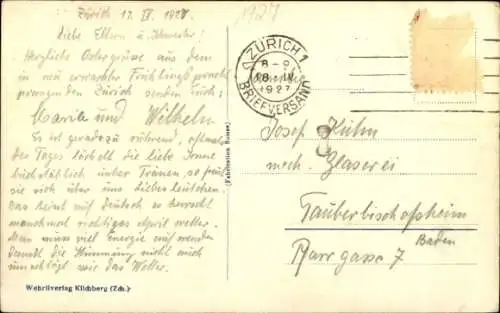 Zürich 17. IV. 1927
Liebe Eltern u. Schwester!
Herzliche Ostergrüsse aus dem
in neu erwachter Frühlingspracht
prangenden Zürich senden Euch:
und Wilhelm
Es ist geradezu rührend,
des Tages die liebe Sonne
unter Tränen, so
sie sich über uns lieben
Das heint auf Deutsch es herrscht
manchmal richtiges April wetter.
Man muss viel Energie
damit die Stimmung nicht auch
umschlägt wie das Wetter.
Wehrliverlag Kilchberg (Zch.)
(Fabrication Suisse)
1927
ZÜRICH 1
8-9
IV
1927
BRIEFVERSAND
Josef Kühn
mech. Glaserei
Tauberbischofsheim
Baden
Pfarrgasse 7